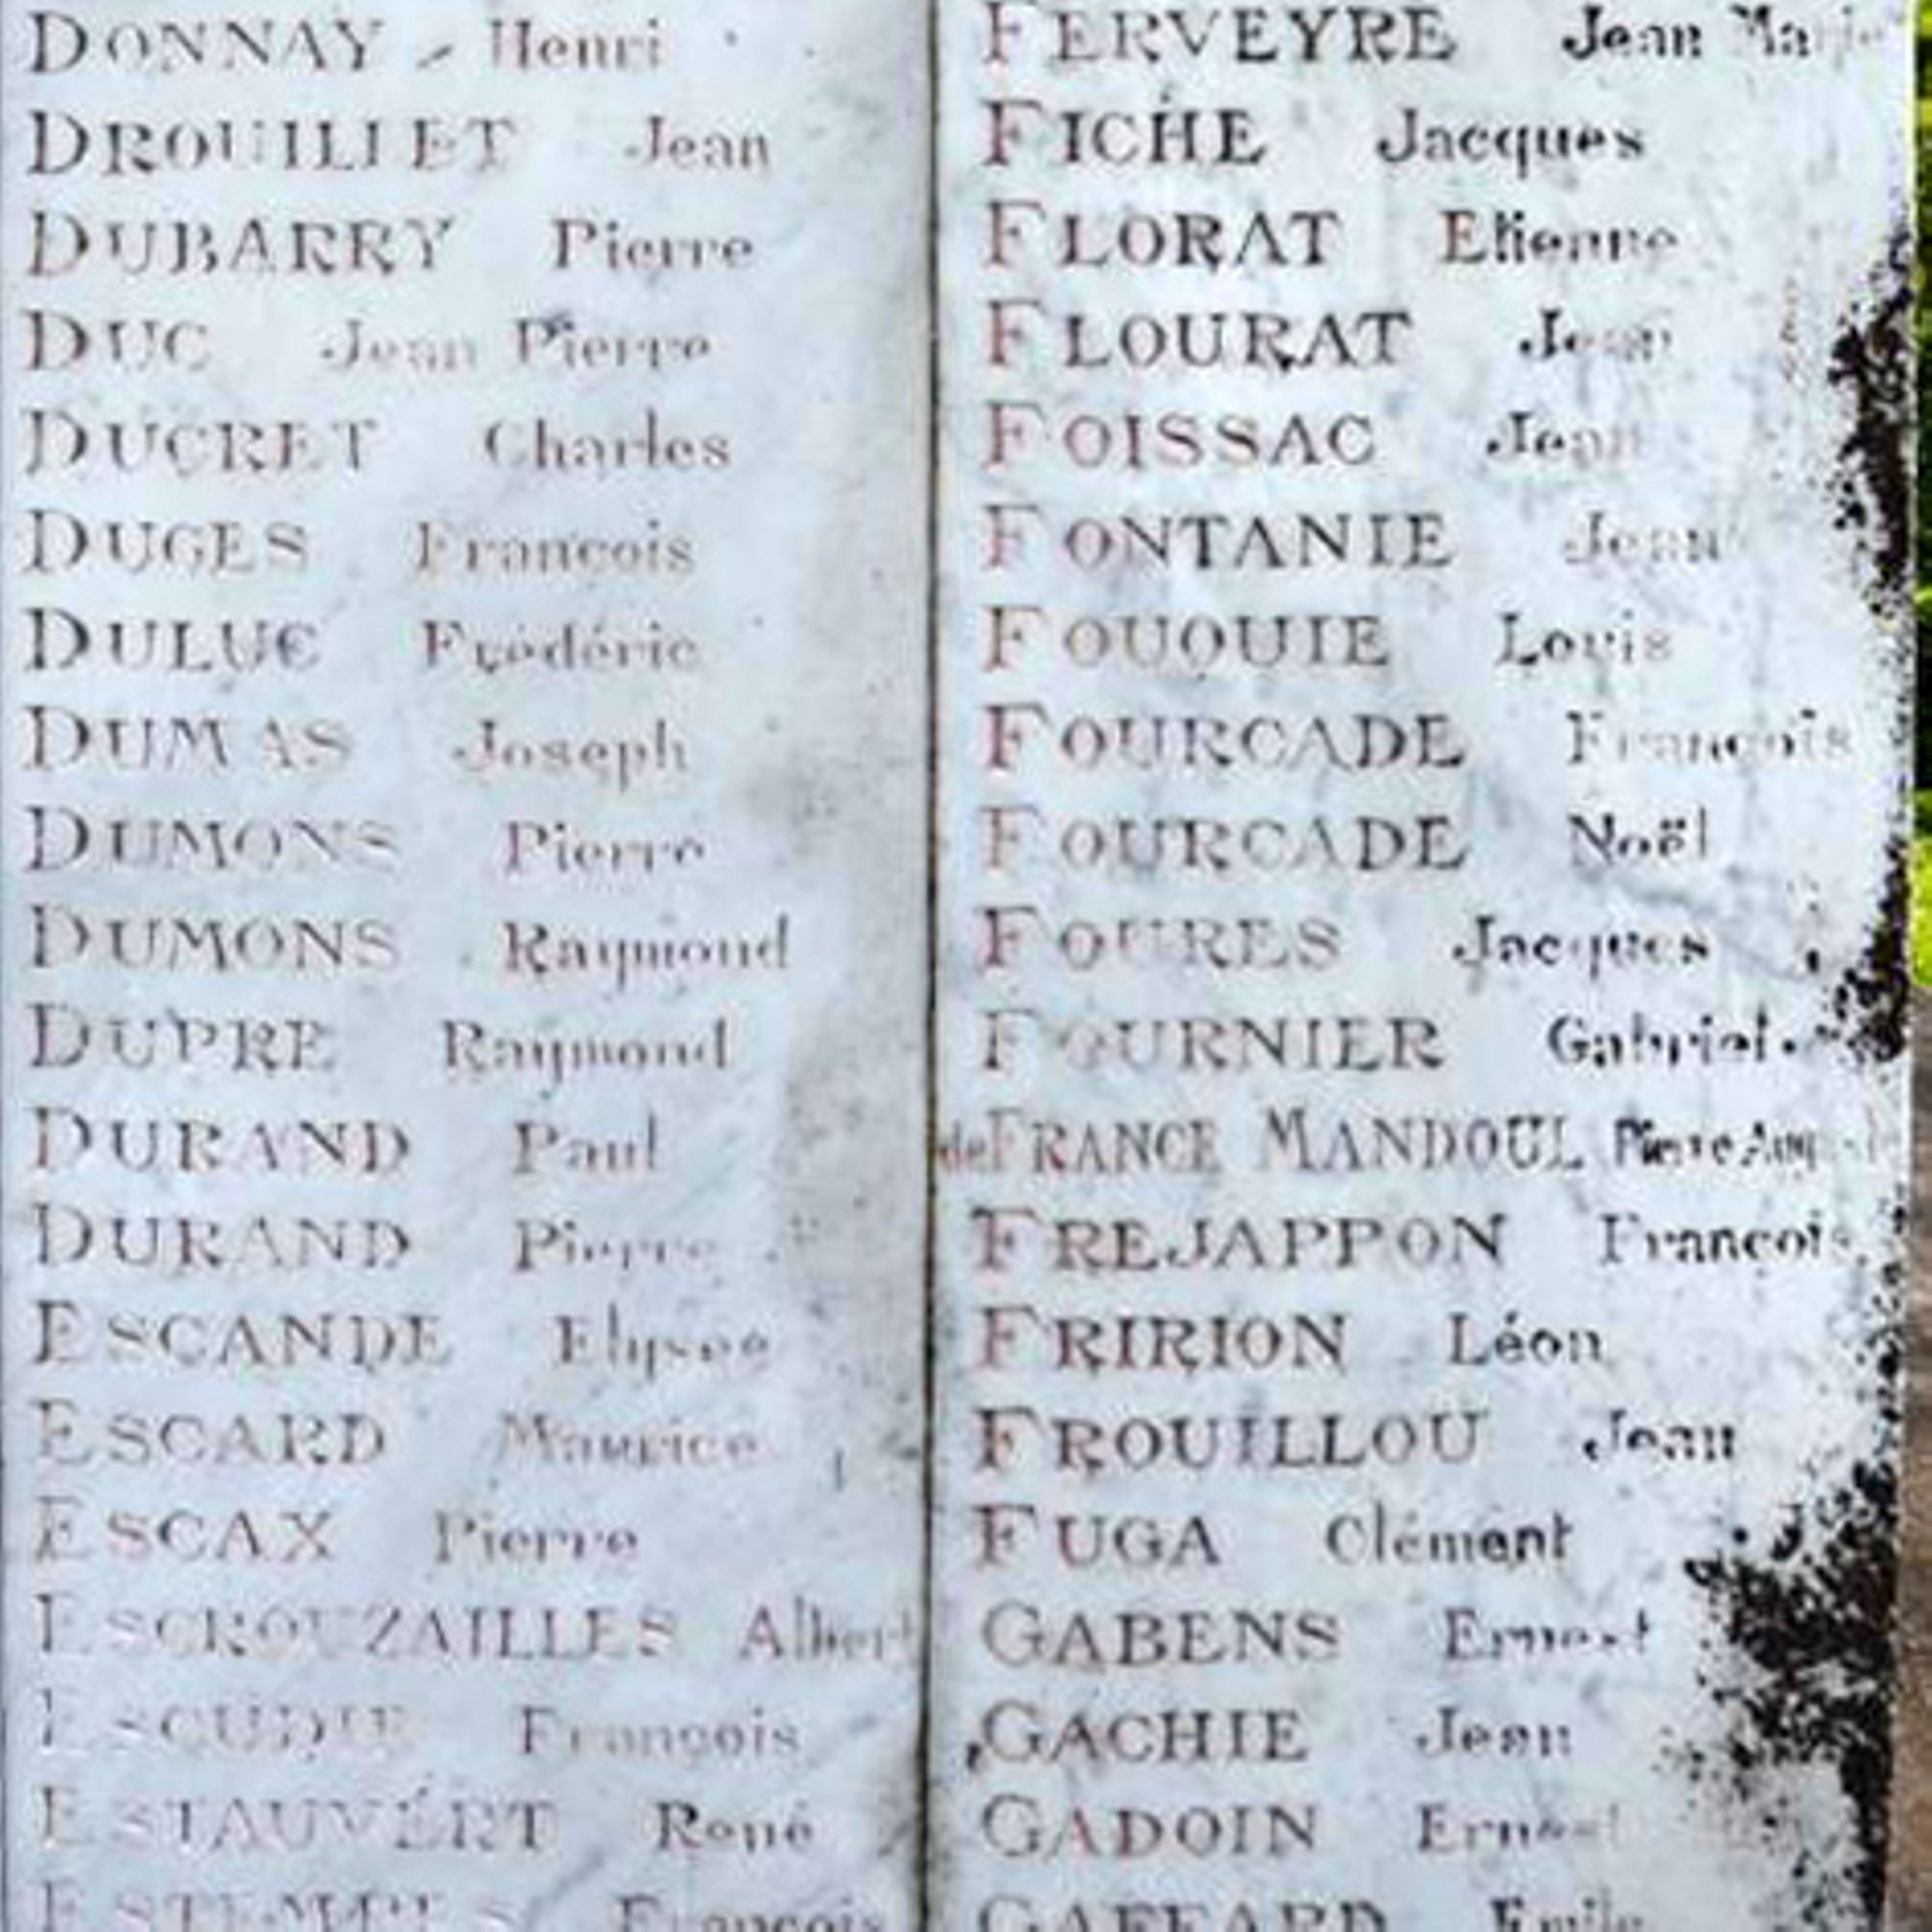 DONNAY Henri
DROUILLET Jean
DUBARRY Pierre
DUC Jean Pierre
DUCRET Charles
DUGES François
DULUC Frédéric
DUMAS Joseph
DUMONS Pierre
DUMONS Raymond
DUPRE Raymond
DURAND Paul
DURAND Pierre
ESCANDE Elysée
ESCARD Maurice
ESCAX Pierre
ESCROUZAILLES Albert
ESCUDIE François
ESTAUVÉRT René
François
FERVEYRE Jean Marie
FICHE Jacques
FLORAT Etienne
FLOURAT Jean
FOISSAC Jean
FONTANIE Jean
FOUQUIE Louis
FOURCADE François
FOURCADE Noël
FOURES Jacques
FOURNIER Gabriel
de FRANCE MANDOUL Pierre
FREJAPPON François
FRIRION Léon
FROUILLOU Jean
FUGA Clément
GABENS Ernest
GACHIE Jean
GADOIN Ernest
GAFFARD Emile